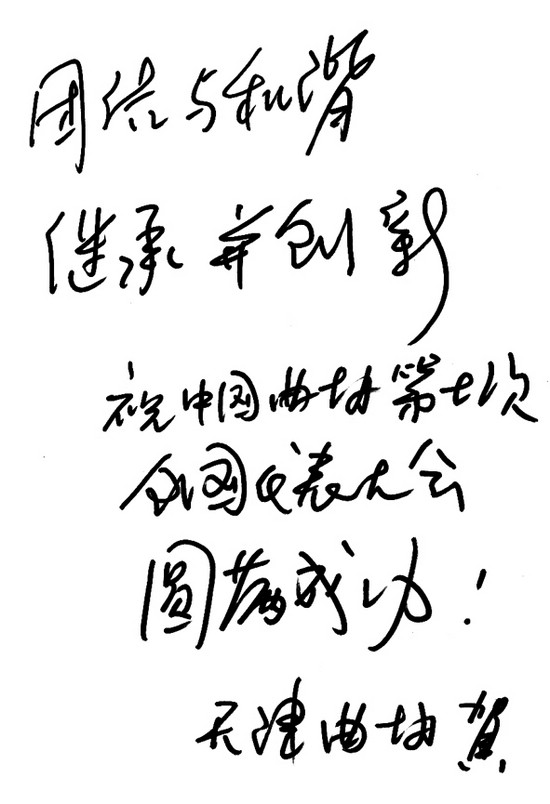 团结与和谐
继承并创新
祝中国曲协第七次
全国代表大会
圆满成功！
天津曲协 贺